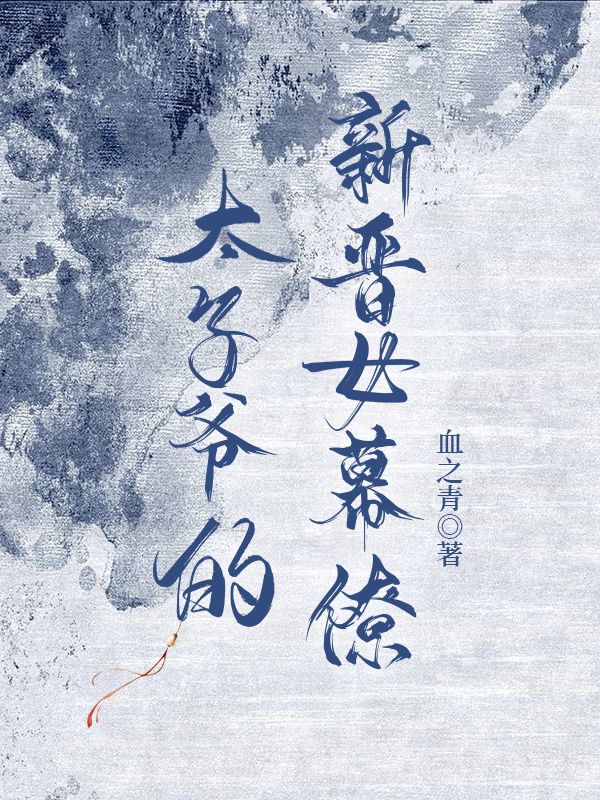 太子爷的
新晋女幕僚
血之青◎著